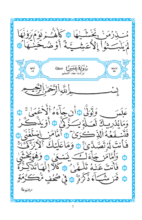 مُنذِرُ مَن يَخْشَىٰهَا كَأَنَّهُمْ يَوْمَ يَرَوْنَهَا
لَمْ يَلْبَثُوٓا۟ إِلَّا عَشِيَّةً أَوْ ضُحَىٰهَا
سُورَةُ عَبَسَ
بِسْمِ ٱللَّهِ ٱلرَّحْمَٰنِ ٱلرَّحِيمِ
عَبَسَ وَتَوَلَّىٰٓ أَن جَآءَهُ ٱلْأَعْمَىٰ
وَمَا يُدْرِيكَ لَعَلَّهُۥ يَزَّكَّىٰٓ أَوْ يَذَّكَّرُ
فَتَنفَعَهُ ٱلذِّكْرَىٰٓ أَمَّا مَنِ ٱسْتَغْنَىٰ
فَأَنتَ لَهُۥ تَصَدَّىٰ وَمَا عَلَيْكَ أَلَّا يَزَّكَّىٰ
وَأَمَّا مَن جَآءَكَ يَسْعَىٰ وَهُوَ يَخْشَىٰ
فَمَن شَآءَ ذَكَرَهُۥ فِى صُحُفٍ مُّكَرَّمَةٍ